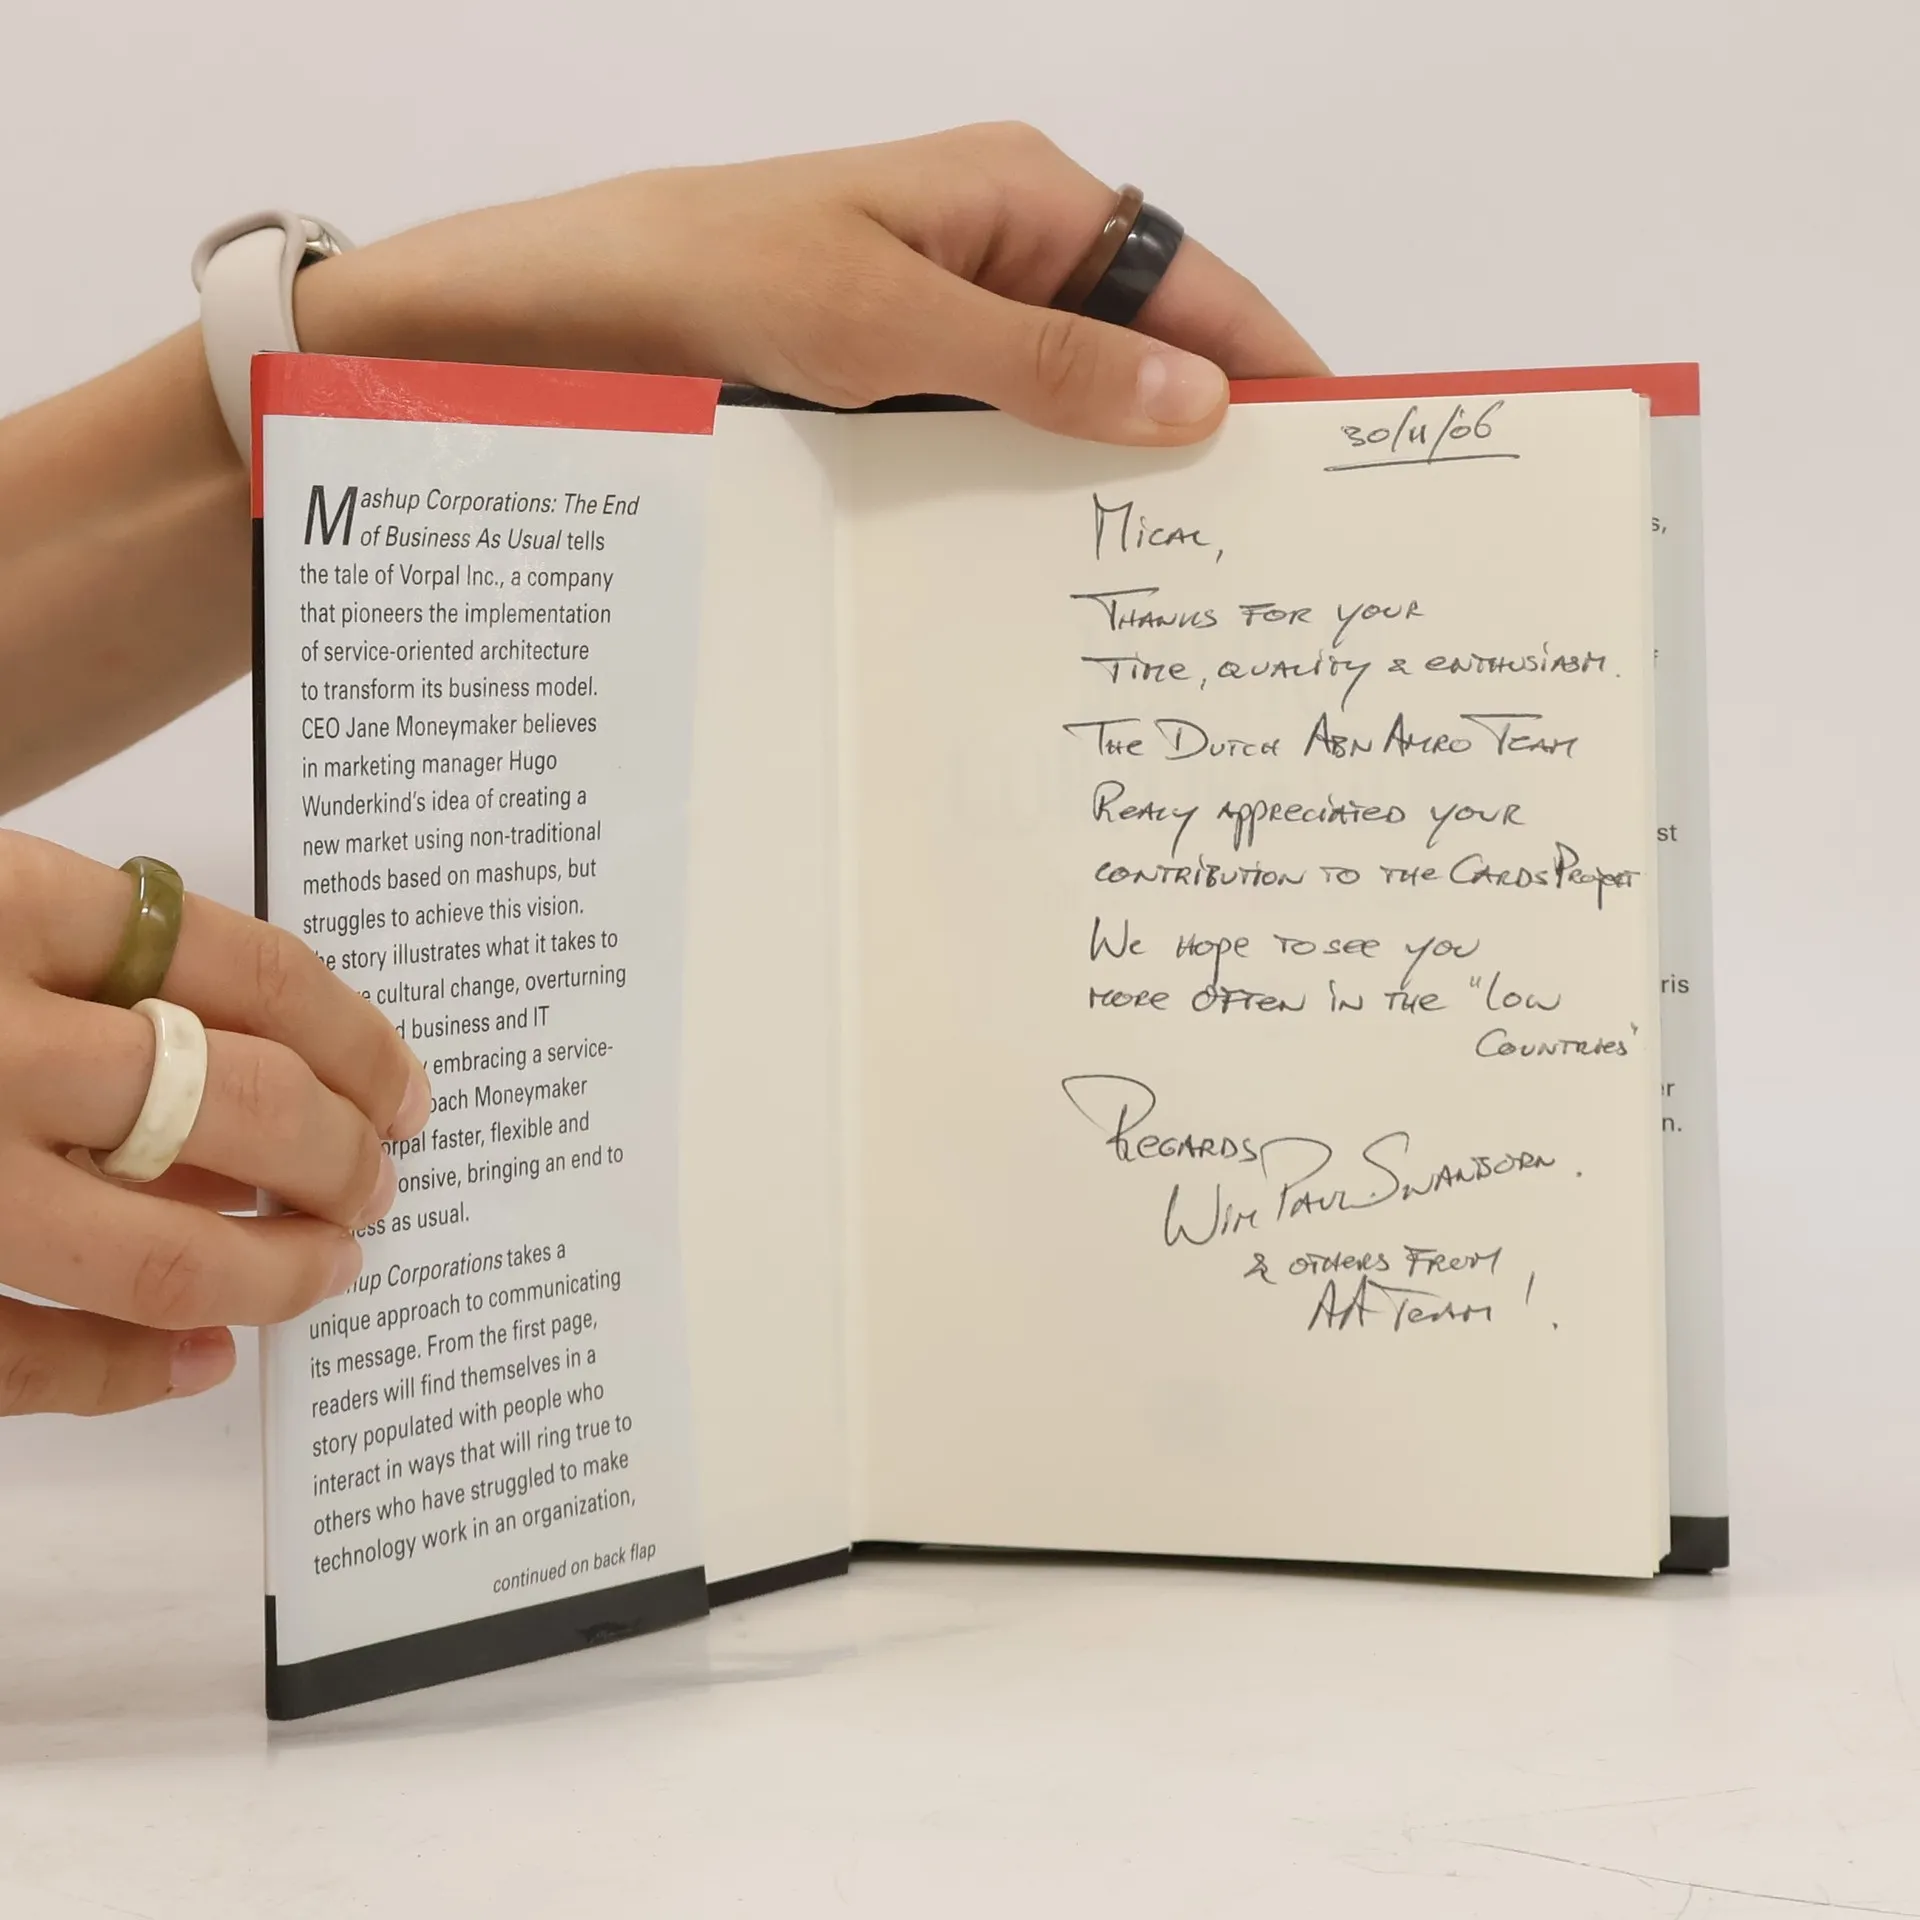 Mashup Corporations: The End
of Business As Usual tells
the tale of Vorpal Inc., a company
that pioneers the implementation
of service-oriented architecture
to transform its business model.
CEO Jane Moneymaker believes
in marketing manager Hugo
Wunderkind's idea of creating a
new market using non-traditional
methods based on mashups, but
struggles to achieve this vision.
he story illustrates what it takes to
e cultural change, overturning
d business and IT
y embracing a service-
oach Moneymaker
orpal faster, flexible and
onsive, bringing an end to
ness as usual.
hup Corporations takes a
unique approach to communicating
its message. From the first page,
readers will find themselves in a
story populated with people who
interact in ways that will ring true to
others who have struggled to make
technology work in an organization,
continued on back flap
30/11/'06
Mical,
Thanks for your
Time, quality & enthusiasm.
The Dutch Abn Amro Team
Realy appreciated your
contribution to the Cards Project
We hope to see you
more often in the "Low
Countries"
Regards
Wim Paul Swanborn.
& others from
AA Team!
s,
f
st
ris
er
n.